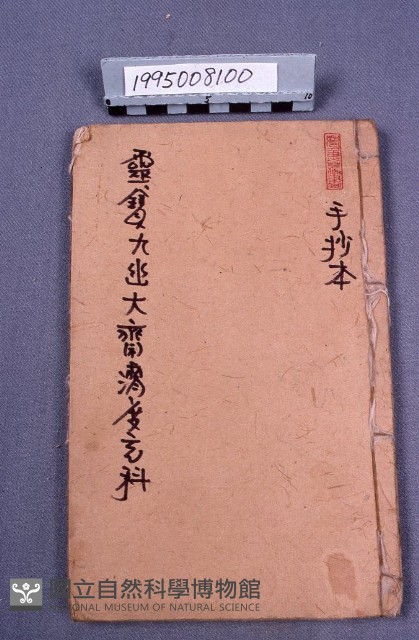 1995008100
0 5 10
手抄本
靈寶九幽大齋濟度玄科
國立自然科學博物館
NATIONAL MUSEUM OF NATURAL SCIENCE